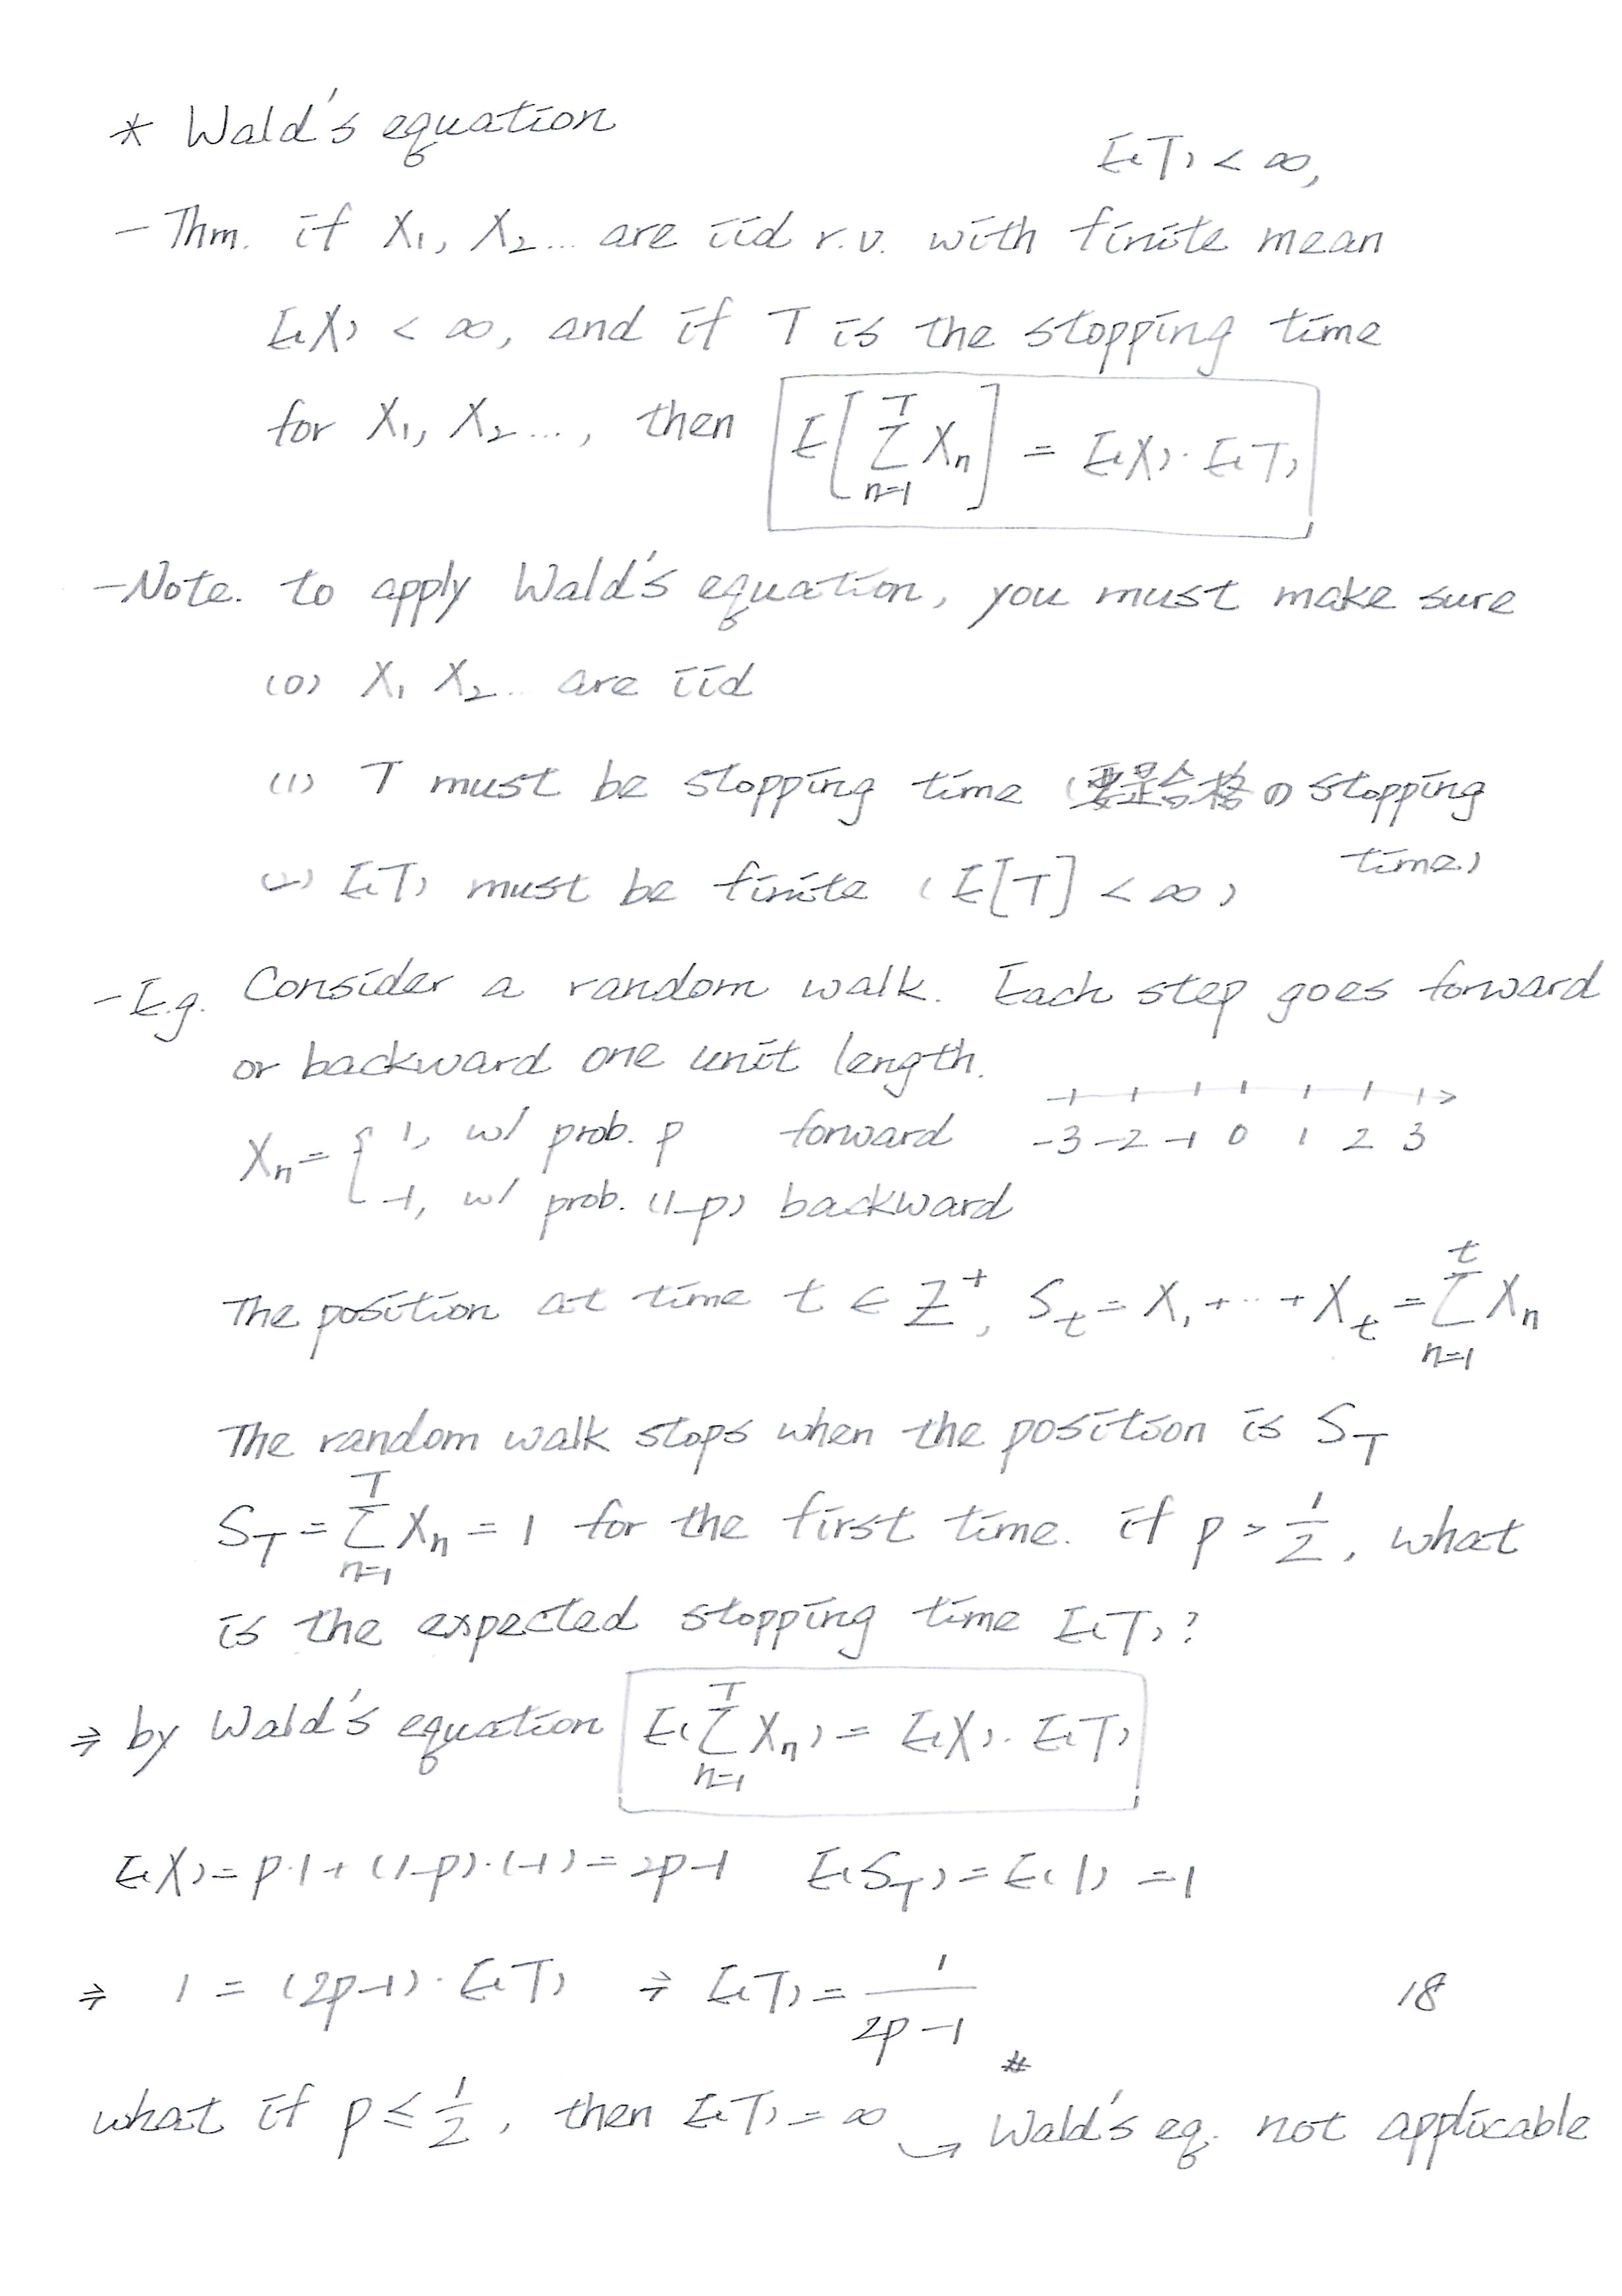 * Wald's equation
E(T) < ∞,
- Thm. if X₁, X₂... are iid r.v. with finite mean
E(X) < ∞, and if T is the stopping time
for X₁, X₂..., then E[∑_{n=1}^{T} X_n] = E(X)·E(T)
- Note. to apply Wald's equation, you must make sure
(0) X₁ X₂... are iid
(1) T must be stopping time (要是合格の stopping
time)
(2) E(T) must be finite (E[T] < ∞)
- E.g. Consider a random walk. Each step goes forward
or backward one unit length.
-3 -2 -1 0 1 2 3
X_n = { 1, w/ prob. p forward
-1, w/ prob. (1-p) backward
The position at time t ∈ Z⁺, S_t = X₁ + ... + X_t = ∑_{n=1}^{t} X_n
The random walk stops when the position is S_T
S_T = ∑_{n=1}^{T} X_n = 1 for the first time. if p > 1/2, what
is the expected stopping time E(T)?
⇒ by Wald's equation E(∑_{n=1}^{T} X_n) = E(X)·E(T)
E(X) = p·1 + (1-p)·(-1) = 2p-1 E(S_T) = E(1) = 1
⇒ 1 = (2p-1)·E(T) ⇒ E(T) = 1/(2p-1) #
18
what if p ≤ 1/2, then E(T) = ∞ → Wald's eq. not applicable